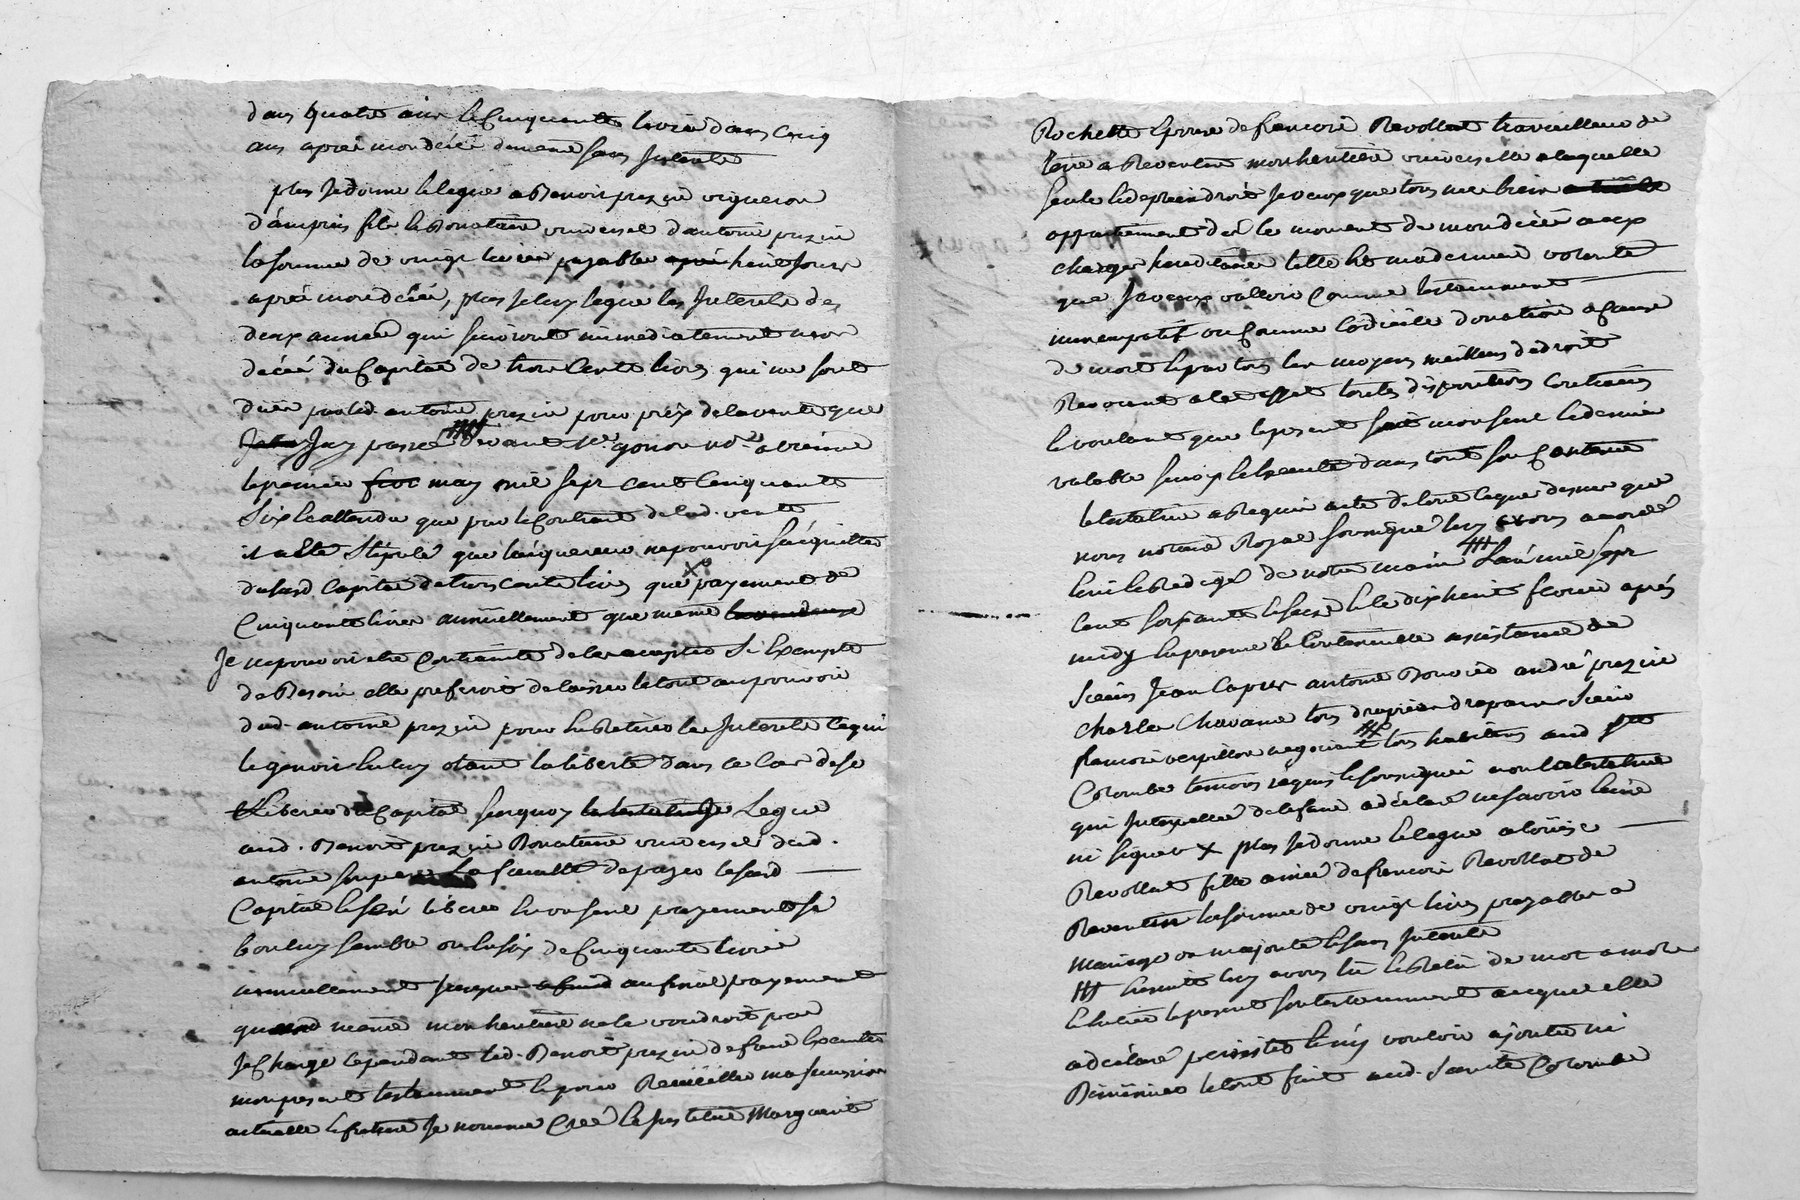 dans quatre ans & cinquante livres dans cinq
ans après mon décès de meme sans Interetz
plus Je donne & legue a Benoit prezin vigneron
d'ampuis fils & donataire universel d'antoine prezin
la somme de vingt livres payable huit Jours
après mon décés, plus Je luy legue les Interetz des
deux années qui suivront immediatement mon
décés du Capital de trois Cents livres qui me sont
deües par led. antoine prezin pour prix de la vente que
Jay passé devant Me gonon no.re a vienne
le premier may mil sept cent Cinquante
Six & attendu que par le Contract de lad. vente
il a été Stipulé que l'acquereur ne pouvoit s'acquitter
dudit Capital de trois cents livres que payement de
Cinquante livres annuellement que meme
Je ne pouvoit etre Contrainte de les accepter Si Exempte
de Besoin elle preferoit de laisser le tout au pouvoir
dud. antoine prezin pour en Retirer les Interetz ce qui
le genoit en luy otant la liberté dans ce Cas de se
Liberer du Capital Je Legue
aud. Benoit prezin Donataire universel dud.
antoine son pere La faculté de payer ledit
Capital & s'en liberer en un seul payement si
bon luy semble ou en six de Cinquante livres
annuellement Jusques au final payement
quand même mon heritiere ne le voudroit pas
Je Charge cependant led. Benoit prezin de faire Executer
mon present testamment & pour Recüeillir ma succession
actuelle & future Je nomme Créé & Institue Marguerite
Rochette Epouse de francois Revollat travailleur de
terre a Reventin mon heritiere universelle a laquelle
seule & de plein droit Je veux que tous mes biens
appartiennent dès le moment de mon décés aux
charges hereditaires telle est ma derniere volonté
que Je veux valloir Comme testamment
nuncupatif ou Comme Codicile donation a cause
de mort & par tous les moyens meilleurs de droit
Revocant a cet effet toutes dispositions Contraires
& voulant que le present soit mon seul & dernier
valable & Executé dans tout son Contenu
la testatrice a Requis acte de tout ce que dessus que
nous notaire Royal soussigné luy avons accordé
& Redigé de notre main L'an mil sept
cent soixante & seize & le dix huit fevrier après
midy En presence & assistance de
Sieurs Jean Capus antoine Bouvier andré prezin
Charle Chavanne tous drapiers drapant Sieur
francois verpillon negociant tous habitans aud
Colombe temoins requis & soussignés non la testatrice
qui Interpellée de le faire a déclaré ne savoir Ecrire
ni signer x plus Je donne & legue a loüise
Revollat fille ainée de francois Revollat de
Reventin la somme de vingt livres payables a
Mariage ou majorité & sans Interetz
Ensuite luy avons lû & Relû de mot a mot
& entier le present son testamment auquel elle
a déclaré persister & n'y vouloir ajouter ni
Diminuer & le tout fait aud. Sainte Colombe